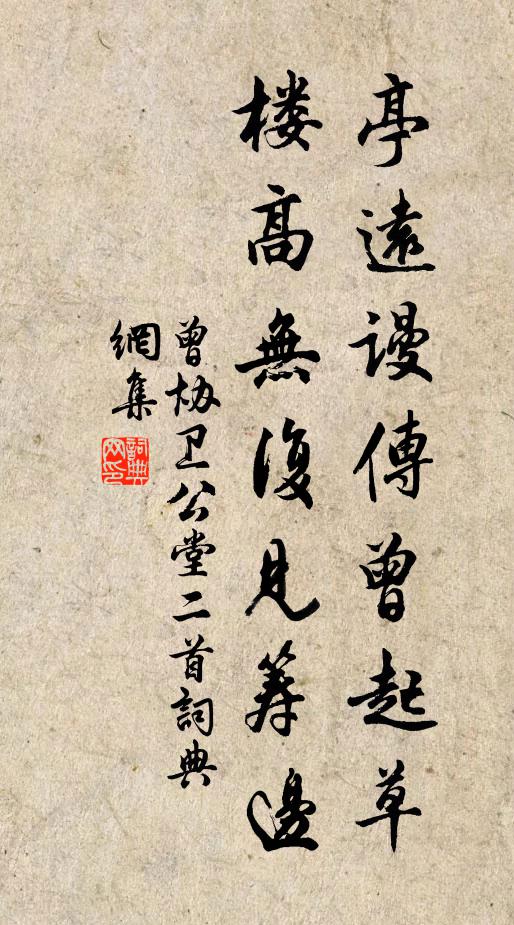 亭遠謾傳曾起草
樓高無復見筹邊
曾协卫公堂二首詞典
網集
詞典网印